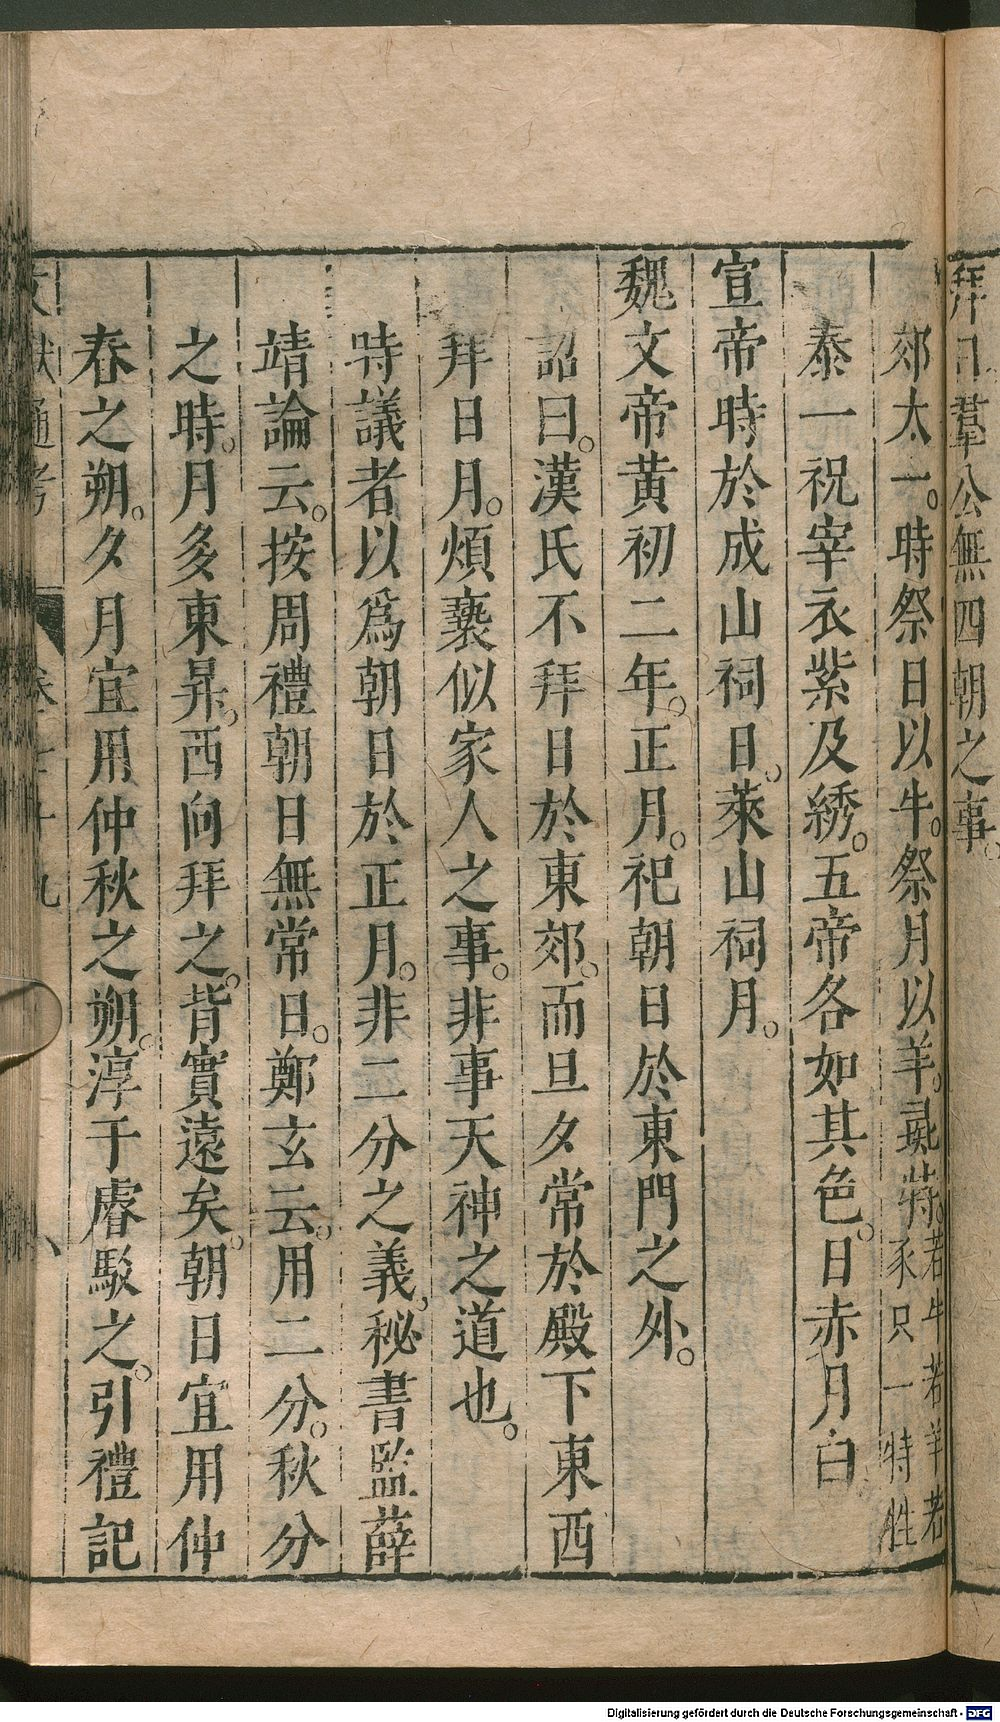 拜日羣公無四朝之事。
郊太一。時祭日以牛。祭月以羊。彘特。若牛若羊若豕只一特牲
泰一祝宰衣紫及綉。五帝各如其色。日赤月白
宣帝時於成山祠日。萊山祠月。
魏文帝黄初二年。正月。祀朝日於東門之外。
詔曰。漢氏不拜日於東郊。而旦夕常於殿下東西
拜日月。煩褻似家人之事。非事天神之道也。
時議者以爲朝日於正月。非二分之義，秘書監薛
靖論云。按周禮朝日無常日。鄭玄云。用二分。秋分
之時。月多東昇。西向拜之。背實遠矣。朝日宜用仲
春之朔。夕月宜用仲秋之朔。淳于睿駁之。引禮記
文獻通考 卷七十九 八
Digitalisierung gefördert durch die Deutsche Forschungsgemeinschaft - DFG